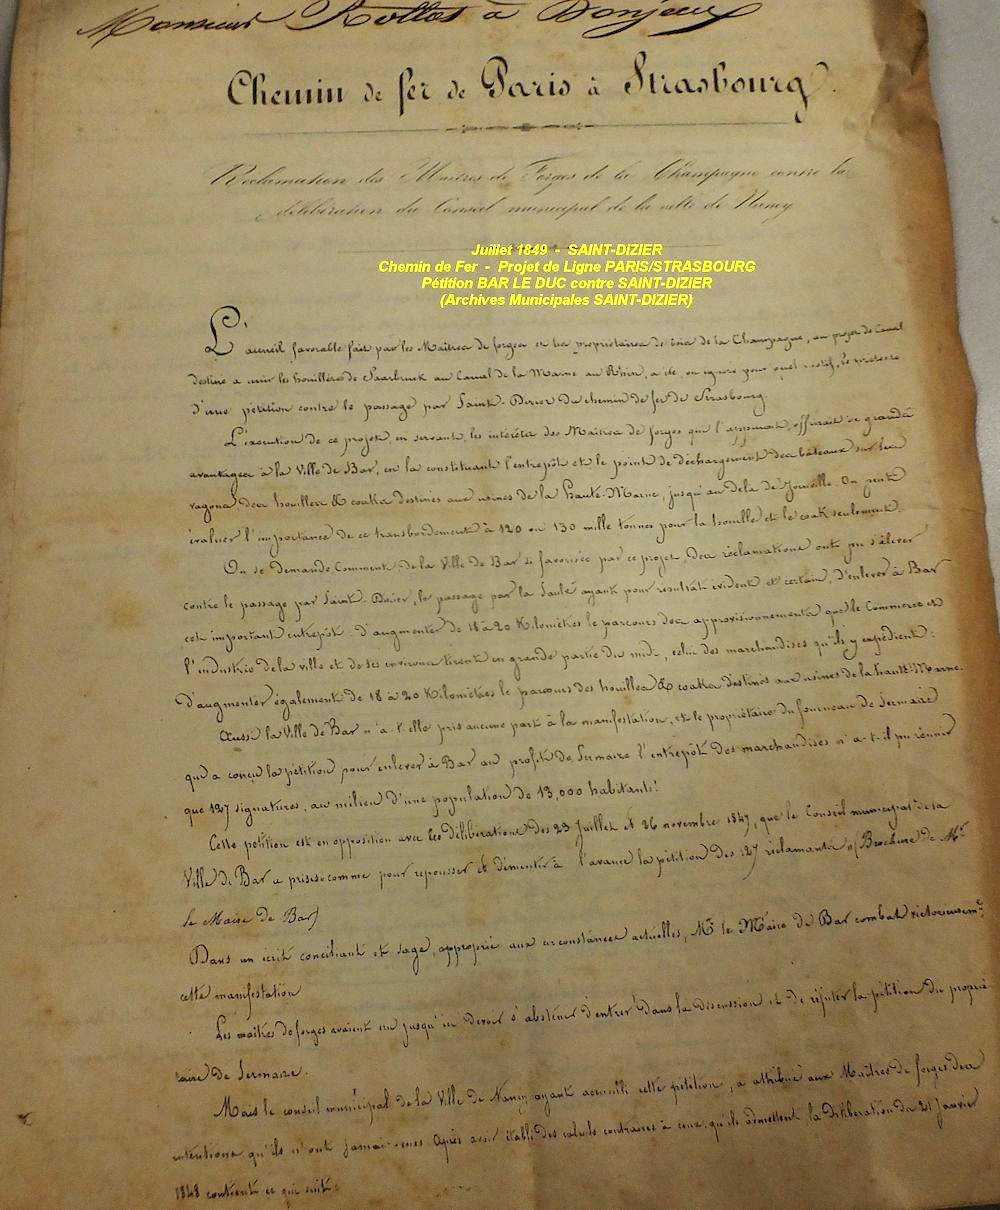 Monsieur Rollos à Donjeux
Chemin de fer de Paris à Strasbourg.
Réclamation des Maîtres de Forges de la Champagne contre la
délibération du Conseil municipal de la ville de Nancy
Juillet 1849 - SAINT-DIZIER
Chemin de Fer - Projet de Ligne PARIS/STRASBOURG
Pétition BAR LE DUC contre SAINT-DIZIER
(Archives Municipales SAINT-DIZIER)
L'accueil favorable fait par les Maîtres de forges et les propriétaires de bois de la Champagne, au projet de Canal
destiné a unir les houillères de Saarbruck au Canal de la Marne au Rhin, a été, on ignore pour quel motif, le prétexte
d'une pétition contre le passage par Saint-Dizier du chemin de fer de Strasbourg.
L'exécution de ce projet, en servant les intérêts des Maîtres de forges qui l'appuient, offrirait de grands
avantages à la Ville de Bar, en la constituant l'entrepôt et le point de déchargement des bateaux sur les
vagons des houilles & cooks destinés aux usines de la Haute-Marne, jusqu'au dela de Joinville. On peut
évaluer l'importance de ce transbordement à 120 ou 130 mille tonnes pour la houille et le cook seulement.
On se demande, Comment, de la Ville de Bar si favorisée par ce projet, des réclamations ont pu s'élever
contre le passage par Saint-Dizier, le passage par la Saulx ayant pour résultat évident et certain, d'enlever à Bar
cet important entrepôt: d'augmenter de 18 à 20 Kilomètres le parcours des approvisionnements que le Commerce et
l'industrie de la ville et de ses environs tirent en grande partie du midi, celui des marchandises qu'ils y expédient:
D'augmenter également de 18 à 20 Kilomètres le parcours des houilles & cooks destinés aux usines de la haute-Marne.
Aussi la Ville de Bar n'a-t-elle pris aucune part à la manifestation, et le propriétaire du fourneau de Sermaize
qui a conçu la pétition pour enlever à Bar au profit de Sermaize l'entrepôt des marchandises n'a-t-il pu réunir
que 127 signatures, au milieu d'une population de 13,000 habitants!
Cette pétition est en opposition avec les délibérations des 23 Juillet et 26 novembre 1847, que le Conseil municipal de la
Ville de Bar a prises comme pour repousser et démentir à l'avance la pétition des 127 réclamants (Brochure de Mr
le Maire de Bar)
Dans un écrit conciliant et sage, approprié aux circonstances actuelles, Mr le Maire de Bar combat victorieusemt
cette manifestation
Les maîtres de forges avaient cru jusqu'ici devoir s'abstenir d'entrer dans la discussion et de réfuter la pétition du proprié-
taire de Sermaize.
Mais le conseil municipal de la Ville de Nancy ayant accueilli cette pétition, a attribué aux Maîtres de forges des
intentions qu'ils n'ont jamais eues après avoir établi des calculs contraires à ceux qu'ils admettent, la délibération du 21 Janvier
1848 contient ce qui suit: